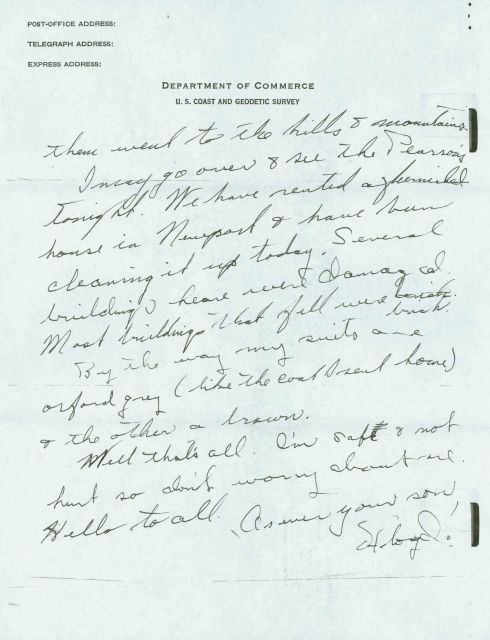 POST-OFFICE ADDRESS:
TELEGRAPH ADDRESS:
EXPRESS ADDRESS:
DEPARTMENT OF COMMERCE
U. S. COAST AND GEODETIC SURVEY
them went to the hills & mountains.
I may go over & see the Pearson's
tonight. We have rented a furnished
house in Newport & have been
cleaning it up today. Several
buildings I hear were damaged.
Most buildings that fell were
brick.
By the way my suits are
oxford grey (like the coat I sent home)
& the other a brown.
Well that's all. I'm safe & not
hurt so don't worry about me.
Hello to all. As ever your son,
Floyd.